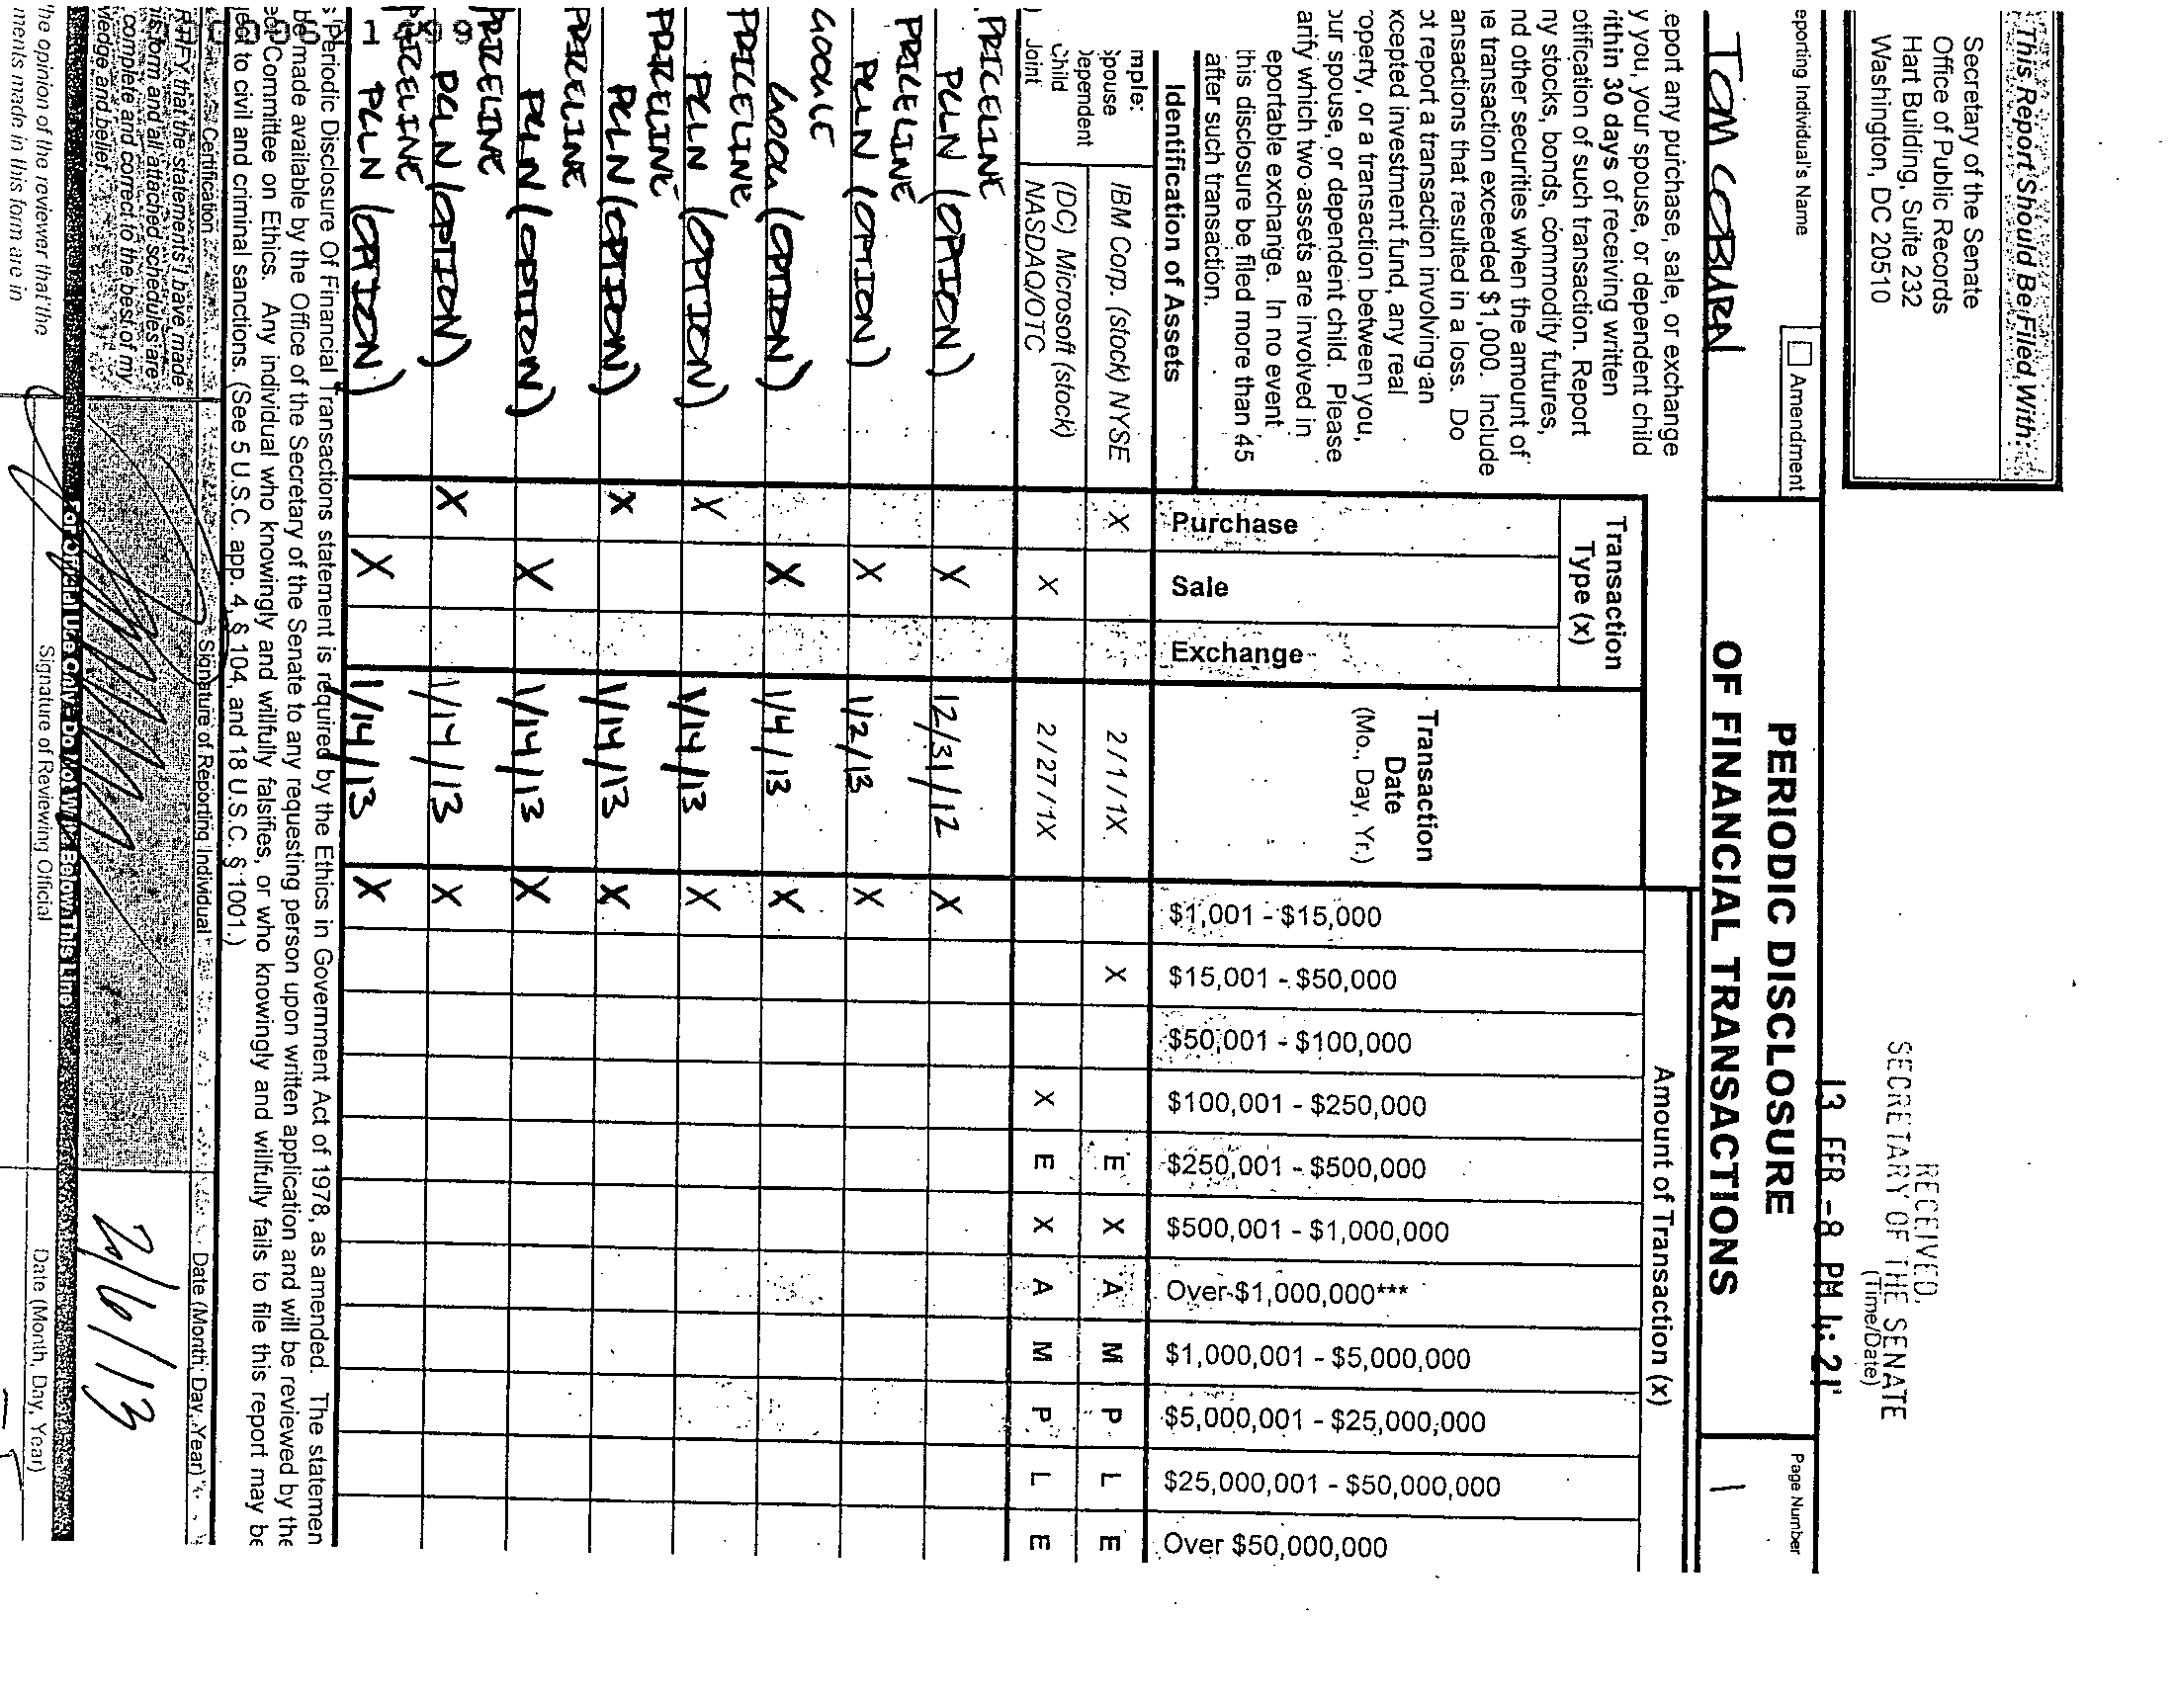 RECEIVED
SECRETARY OF THE SENATE
(Time/Date)
13 FEB -8 PM 4:21
This Report Should Be Filed With:
Secretary of the Senate
Office of Public Records
Hart Building, Suite 232
Washington, DC 20510
eporting Individual's Name
TOM COBURN
Amendment
PERIODIC DISCLOSURE
OF FINANCIAL TRANSACTIONS
Page Number
1
eport any purchase, sale, or exchange
y you, your spouse, or dependent child
rithin 30 days of receiving written
otification of such transaction. Report
ny stocks, bonds, commodity futures,
nd other securities when the amount of
ie transaction exceeded $1,000. Include
ansactions that resulted in a loss. Do
ot report a transaction involving an
xcepted investment fund, any real
operty, or a transaction between you,
our spouse, or dependent child. Please
arify which two assets are involved in
eportable exchange. In no event
this disclosure be filed more than 45
after such transaction.
Identification of Assets
Transaction
Type (x)
Purchase
Sale
Exchange
Transaction
Date
(Mo., Day, Yr.)
Amount of Transaction (x)
$1,001 - $15,000
$15,001 - $50,000
$50,001 - $100,000
$100,001 - $250,000
$250,001 - $500,000
$500,001 - $1,000,000
Over $1,000,000***
$1,000,001 - $5,000,000
$5,000,001 - $25,000,000
$25,000,001 - $50,000,000
Over $50,000,000
mple:
Spouse
Dependent
Child
Joint
IBM Corp. (stock) NYSE X 2/1/1X X E X A M P L E
(DC) Microsoft (stock)
NASDAQ/OTC X 2/27/1X X E X A M P L E
PRICELINE
PCLN (OPTION) X 12/31/12 X
PRICELINE
PCLN (OPTION) X 1/2/13 X
GOOGLE
GOOG (OPTION) X 1/4/13 X
PRICELINE
PCLN (OPTION) X 1/14/13 X
PRICELINE
PCLN (OPTION) X 1/14/13 X
PRICELINE
PCLN (OPTION) X 1/14/13 X
PRICELINE
PCLN (OPTION) X 1/14/13 X
PRICELINE
PCLN (OPTION) X 1/14/13 X
s Periodic Disclosure Of Financial Transactions statement is required by the Ethics in Government Act of 1978, as amended. The statemen
be made available by the Office of the Secretary of the Senate to any requesting person upon written application and will be reviewed by the
Committee on Ethics. Any individual who knowingly and willfully falsifies, or who knowingly and willfully fails to file this report may be
ject to civil and criminal sanctions. (See 5 U.S.C. app. 4, § 104, and 18 U.S.C. § 1001.)
Certification
Signature of Reporting Individual
Date (Month, Day, Year)
RTIFY that the statements I have made
is form and all attached schedules are
complete and correct to the best of my
vledge and belief.
2/6/13
For Official Use Only - Do Not Write Below This Line
he opinion of the reviewer that the
ments made in this form are in
Signature of Reviewing Official
Date (Month, Day, Year)